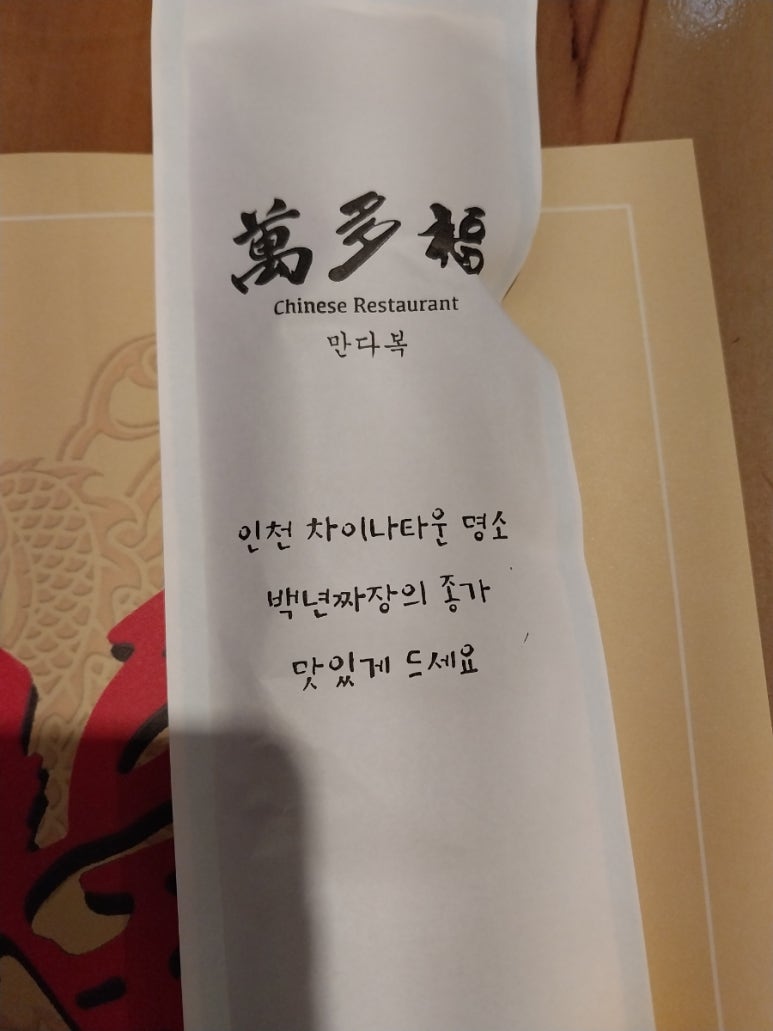 萬多福
Chinese Restaurant
만다복
인천 차이나타운 명소
백년짜장의 종가
맛있게 드세요